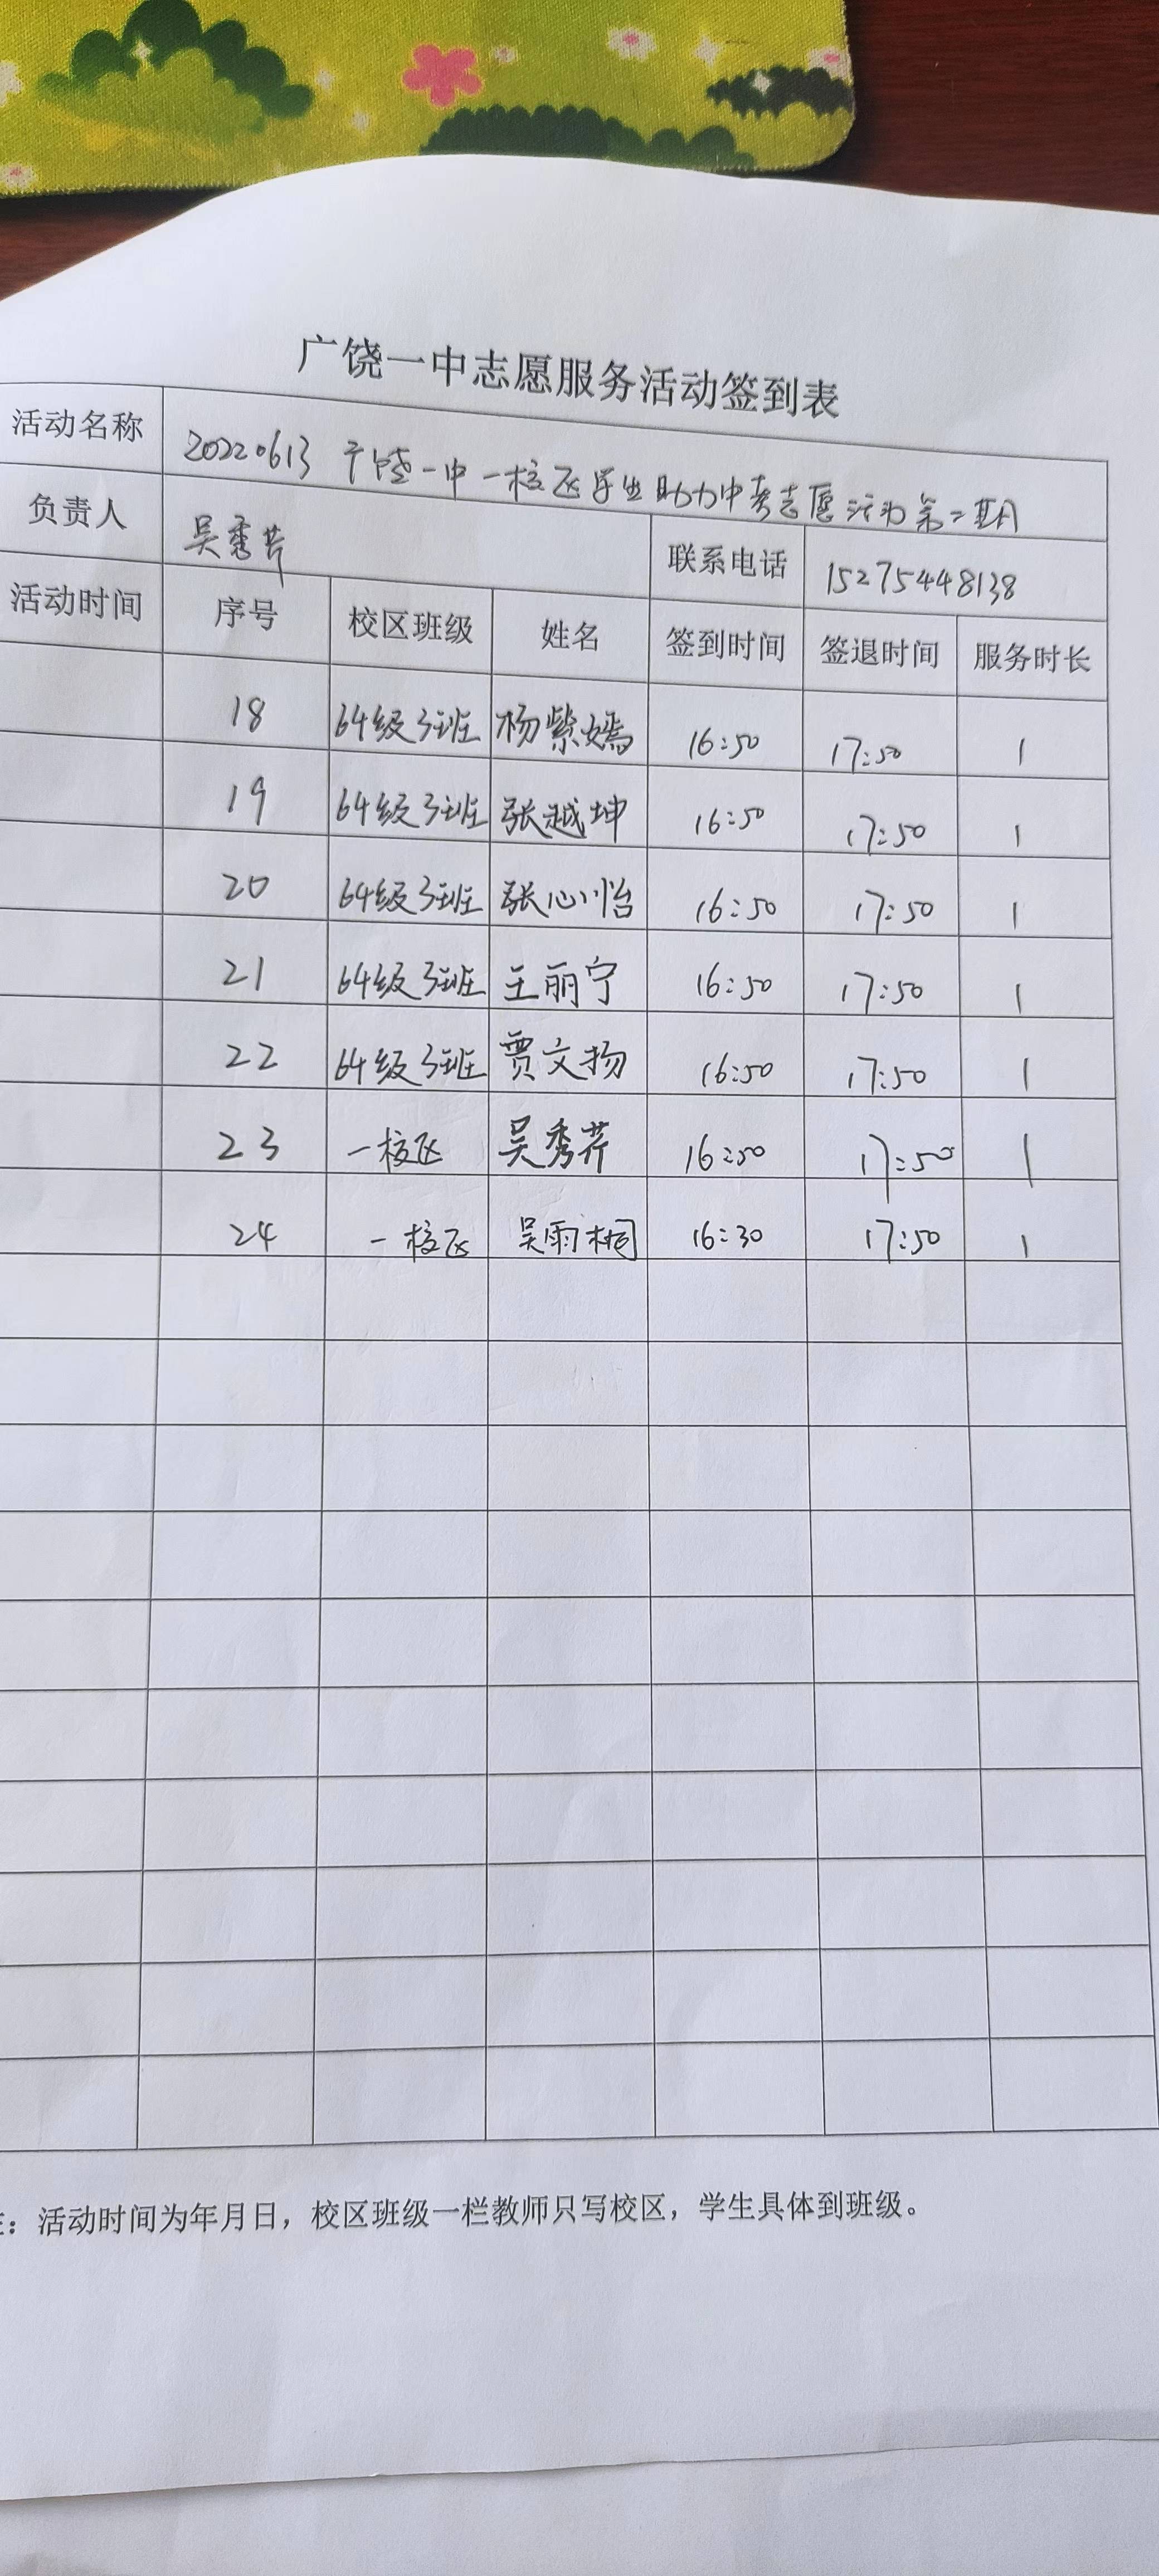 广饶一中志愿服务活动签到表
活动名称 20220613 广饶一中一校区学生助力中考志愿活动第二期
负责人 吴秀芹 联系电话 15275448138
活动时间 序号 校区班级 姓名 签到时间 签退时间 服务时长
18 64级3班 杨紫嫣 16:50 17:50 1
19 64级3班 张越坤 16:50 17:50 1
20 64级3班 张心怡 16:50 17:50 1
21 64级3班 王丽宁 16:50 17:50 1
22 64级3班 贾文扬 16:50 17:50 1
23 一校区 吴秀芹 16:50 17:50 1
24 一校区 吴雨桐 16:30 17:50 1
：活动时间为年月日，校区班级一栏教师只写校区，学生具体到班级。